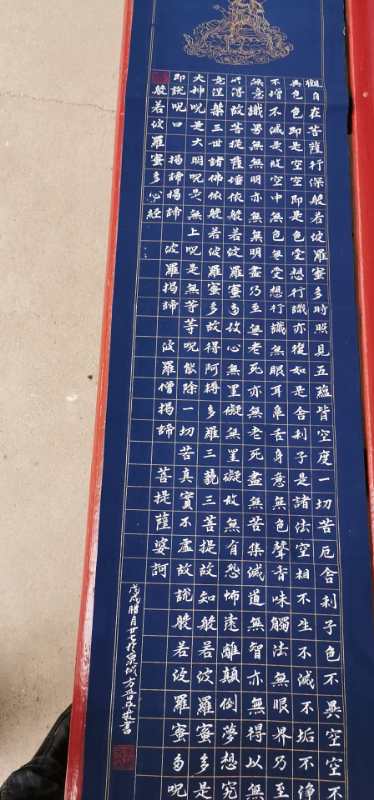 觀自在菩薩行深般若波羅蜜多時照見五蘊皆空度一切苦厄舍利子色不異空空不
異色色即是空空即是色受想行識亦復如是舍利子是諸法空相不生不滅不垢不淨
不增不減是故空中無色無受想行識無眼耳鼻舌身意無色聲香味觸法無眼界乃至
無意識界無無明亦無無明盡乃至無老死亦無老死盡無苦集滅道無智亦無得以無
所得故菩提薩埵依般若波羅蜜多故心無罣礙無罣礙故無有恐怖遠離顛倒夢想究
竟涅槃三世諸佛依般若波羅蜜多故得阿耨多羅三藐三菩提故知般若波羅蜜多是
大神呪是大明呪是無上呪是無等等呪能除一切苦真實不虛故說般若波羅蜜多呪
即說呪曰 揭諦揭諦 波羅揭諦 波羅僧揭諦 菩提薩婆訶
般若波羅蜜多心經
戊戌臘月廿七於泉城 敬書